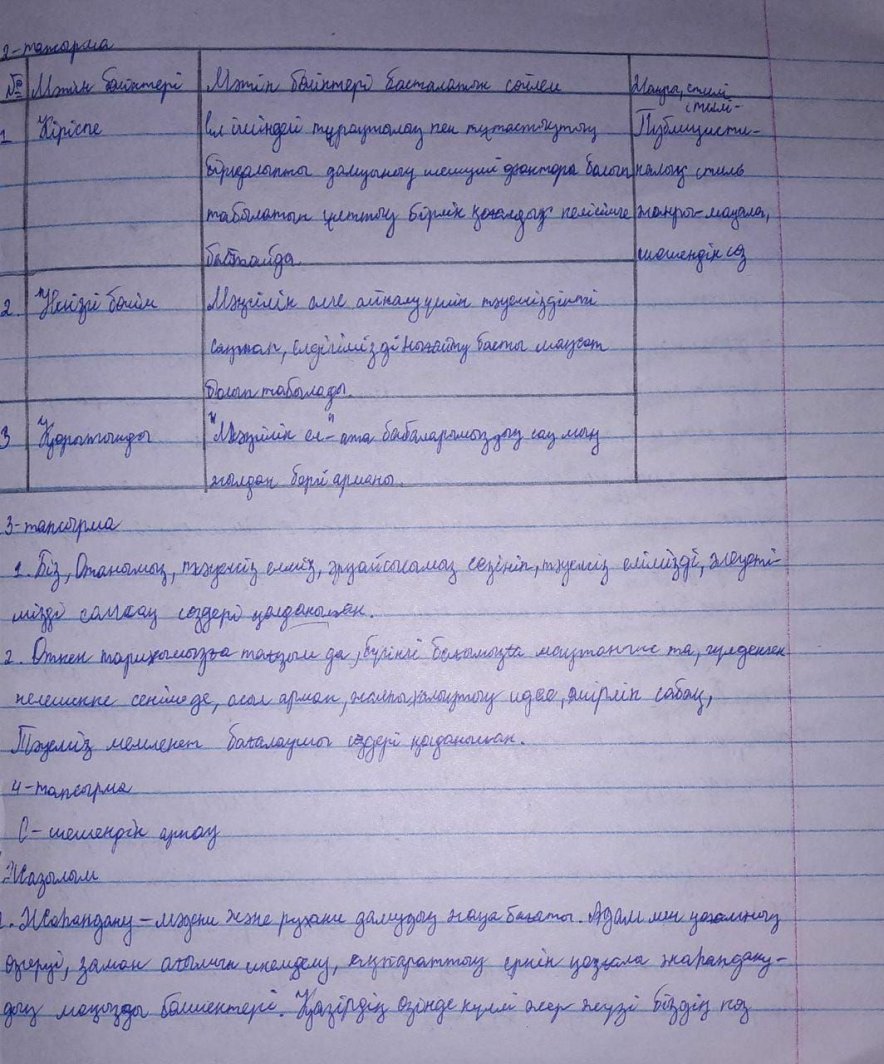 2-тапсырма
№ Мәтін бөліктері Мәтін бөліктері басталатын сөйлем Жанры, стилі
1 Кіріспе Ел ішіндегі тұрақтылық пен тұтастықтың Публицисти-
бірқалыпты дамуының шешуші факторы болып калық стиль
табылатын ұлттық бірлік қоғамдық келісімге жанры-мақала,
бастайды. шешендік сөз
2. Негізгі бөлім Мәңгілік елге айналу үшін тәуелсіздікті
сақтап, елдігімізді нығайту басты мақсат
болып табылады.
3 Қорытынды "Мәңгілік ел"- ата бабаларымыздың сан мың
жылдан бергі арманы.
3-тапсырма
1. Біз, Отанымыз, тәуелсіз еліміз, әрқайсысымыз сезініп, тәуелсіз елімізді, әлеуеті-
мізді сақтау сөздері қолданылған.
2. Өткен тарихымызға тағзым да, бүгінгі бақытымызға мақтаныш та, гүлденген
келешекке сенім де, асыл арман, жалпыхалықтық идея, өмірлік сабақ,
Тәуелсіз мемлекет бағалауыш сөздері қолданылған.
4-тапсырма
С- шешендік арнау
Жазылым
1. Жаһандану – мәдени және рухани дамудың жаңа бағыты. Адам мен қоғамның
өзгеруі, заман ағымын икемделу, ақпараттың еркін қозғала жаһандану-
дың маңызды бөлшектері. Қазірдің өзінде күллі жер жүзі біздің көз